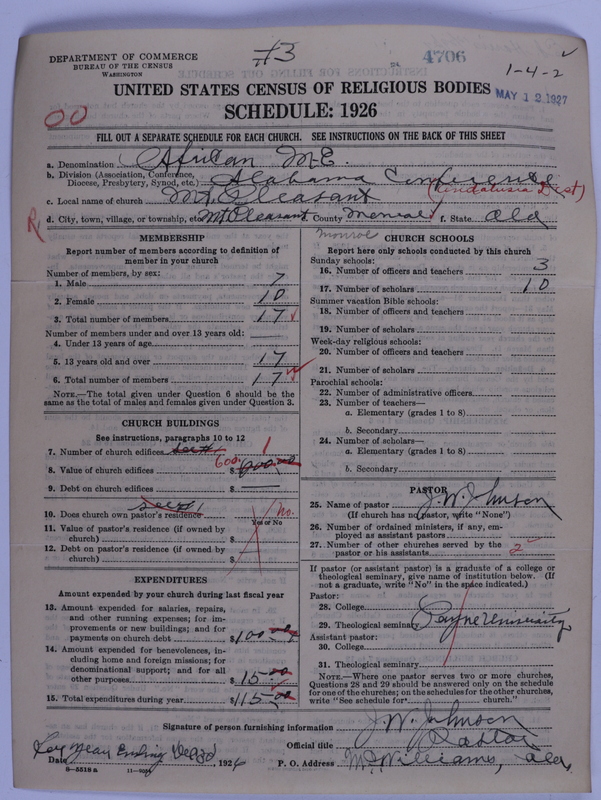 #3
4706
1-4-2
MAY 12 1927
DEPARTMENT OF COMMERCE
BUREAU OF THE CENSUS
WASHINGTON
UNITED STATES CENSUS OF RELIGIOUS BODIES
SCHEDULE: 1926
OO
FILL OUT A SEPARATE SCHEDULE FOR EACH CHURCH. SEE INSTRUCTIONS ON THE BACK OF THIS SHEET
a. Denomination African M.E.
b. Division (Association, Conference, Diocese, Presbytery, Synod, etc.) Alabama Conference
c. Local name of church Mt. Pleasant (Andalusia Dist)
R
d. City, town, village, or township, etc. Mt Pleasant County Monroe f. State Ala
Monroe
MEMBERSHIP
Report number of members according to definition of
member in your church
Number of members, by sex:
1. Male 7
2. Female 10
3. Total number of members 17
Number of members under and over 13 years old:
4. Under 13 years of age
5. 13 years old and over 17
6. Total number of members 17
NOTE.—The total given under Question 6 should be the
same as the total of males and females given under Question 3.
CHURCH BUILDINGS
See instructions, paragraphs 10 to 12
7. Number of church edifices see #1 1
8. Value of church edifices 600. $ 600.00
9. Debt on church edifices $
see #1
10. Does church own pastor's residence No.
Yes or No
11. Value of pastor's residence (if owned by
church) $
12. Debt on pastor's residence (if owned by
church) $
EXPENDITURES
Amount expended by your church during last fiscal year
13. Amount expended for salaries, repairs,
and other running expenses; for im-
provements or new buildings; and for
payments on church debt $100.00
14. Amount expended for benevolences, in-
cluding home and foreign missions; for
denominational support; and for all
other purposes $ 15.00
15. Total expenditures during year $115.00
CHURCH SCHOOLS
Report here only schools conducted by this church
Sunday schools:
16. Number of officers and teachers 3
17. Number of scholars 10
Summer vacation Bible schools:
18. Number of officers and teachers
19. Number of scholars
Week-day religious schools:
20. Number of officers and teachers
21. Number of scholars
Parochial schools:
22. Number of administrative officers
23. Number of teachers—
a. Elementary (grades 1 to 8)
b. Secondary
24. Number of scholars—
a. Elementary (grades 1 to 8)
b. Secondary
PASTOR
25. Name of pastor J. W. Johnson
(If church has no pastor, write "None")
26. Number of ordained ministers, if any, em-
ployed as assistant pastors
27. Number of other churches served by the
pastor or his assistants 2
If pastor (or assistant pastor) is a graduate of a college or
theological seminary, give name of institution below. (If
not a graduate, write "No" in the space indicated.)
Pastor:
28. College
29. Theological seminary Payne University
Assistant pastor:
30. College
31. Theological seminary
NOTE.—Where one pastor serves two or more churches,
Questions 28 and 29 should be answered only on the schedule
for one of the churches; on the schedules for the other churches,
write "See schedule for church."
Signature of person furnishing information J. W. Johnson
Official title Pastor
Date For year Ending 1926 P. O. Address McWilliams, Ala.
8-5518 a